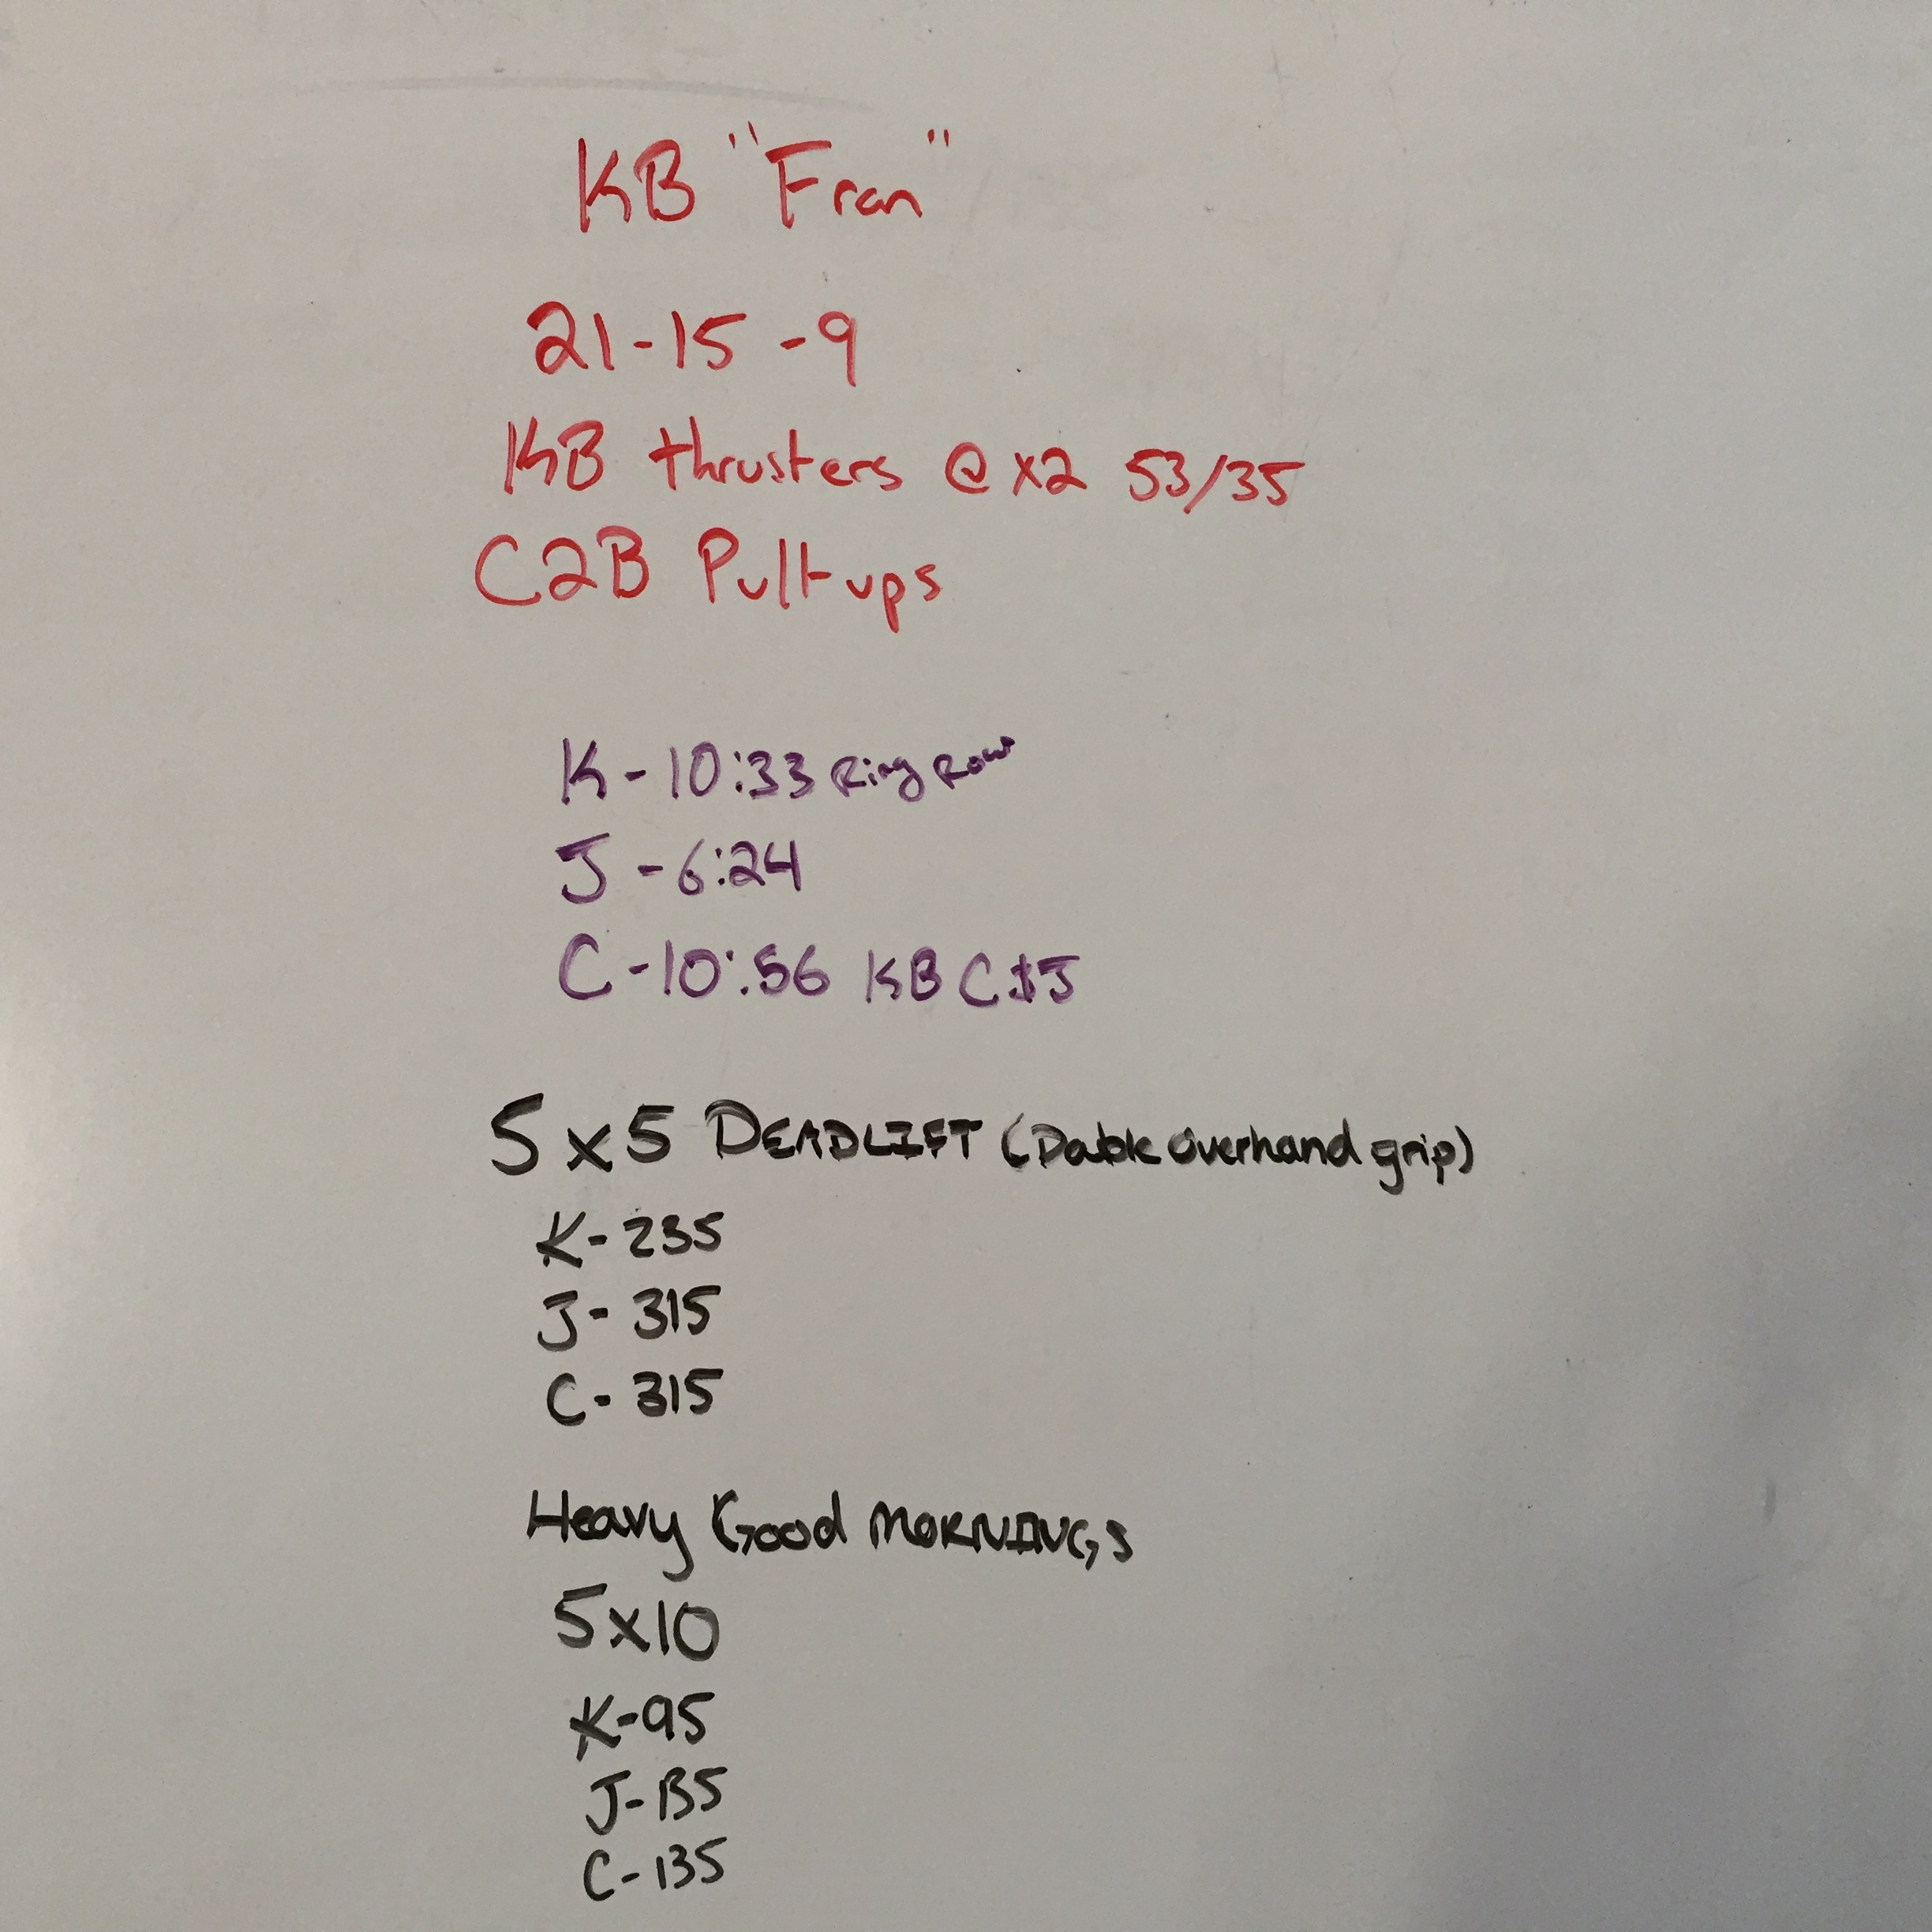 KB "Fran"
21-15-9
KB thrusters @ x2 53/35
C2B Pull-ups
K-10:33 Ring Rows
J-6:24
C-10:56 KB C&J
5x5 DEADLIFT (Double overhand grip)
K-235
J-315
C-315
Heavy Good MORNINGS
5x10
K-95
J-135
C-135